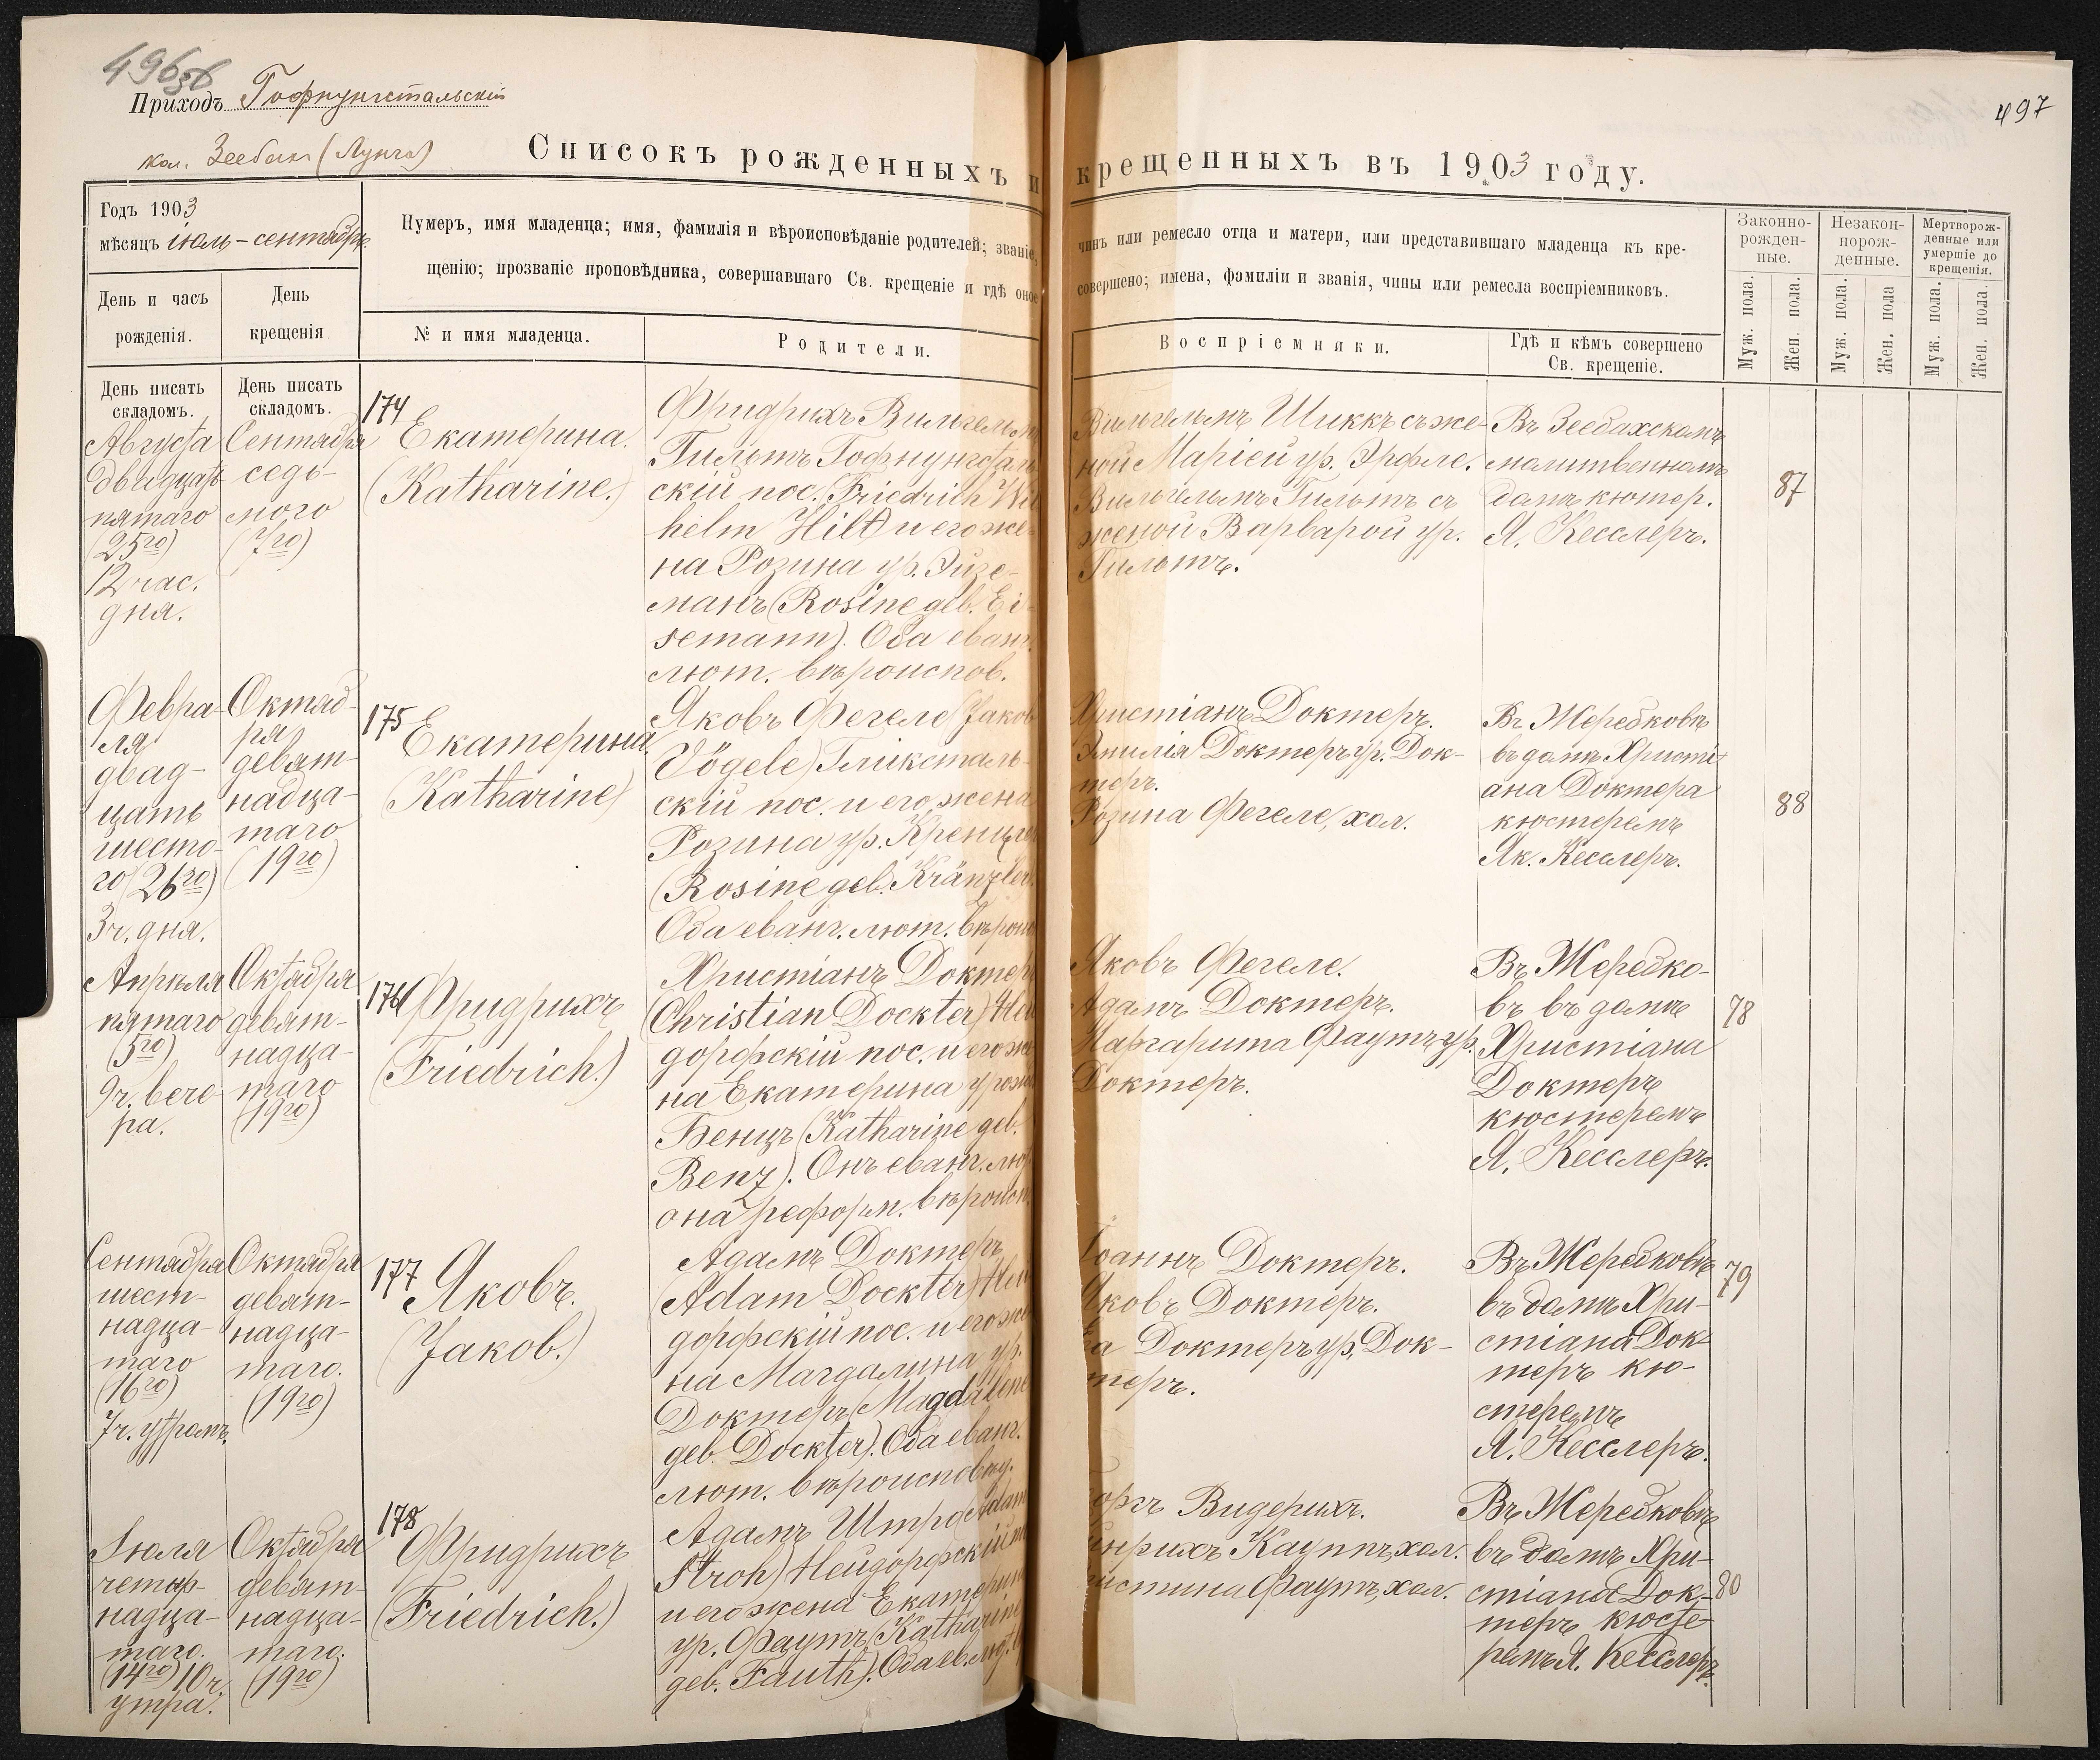 496
Приходъ Гофнунгстальскій
кол. Зеебахъ (Лунга)
497
Списокъ рожденныхъ и крещенныхъ въ 1903 году.
Годъ 1903
мѣсяцъ іюль-сентябрь
День и часъ
рожденія.
День
крещенія
Нумеръ, имя младенца; имя, фамилія и вѣроисповѣданіе родителей; званіе,
чинъ или ремесло отца и матери, или представившаго младенца къ кре-
щенію; прозваніе проповѣдника, совершавшаго Св. крещеніе и гдѣ оное
совершено; имена, фамиліи и званія, чины или ремесла воспріемниковъ.
№ и имя младенца.
Родители.
Воспріемники.
Гдѣ и кѣмъ совершено
Св. крещеніе.
Законно-
рожден-
ные.
Незакон-
норож-
денные.
Мертворож-
денные или
умершіе до
крещенія.
Муж. пола.
Жен. пола.
Муж. пола.
Жен. пола
Муж. пола.
Жен. пола.
День писать
складомъ.
День писать
складомъ.
Августа
двадцать
пятаго
(25го)
12 час.
дня.
Сентября
седь-
мого
(7го)
174
Екатерина.
(Katharine.)
Фридрихъ Вильгельмъ
Гильтъ Гофнунгсталь
скій пос. (Friedrich Wil
helm Hilt) и его же-
на Розина ур. Эйзе-
манъ (Rosine geb. Ei-
semann). Оба еванг.
лют. вѣроиспов.
Вильгельмъ Шиккъ съ же-
ной Маріей ур. Эрфле.
Вильгельмъ Гильтъ съ
женой Варварой ур.
Гильтъ.
Въ Зеебахскомъ
молитвенномъ
домѣ кюстер.
Я. Кесслеръ.
87
Февра-
ля
двад-
цать
шесто-
го (26го)
3 ч. дня.
Октяб-
ря
девят-
надца-
таго
(19го)
175
Екатерина.
(Katharine)
Яковъ Фегеле (Jakob
Vögele) Гликсталь-
скій пос. и его жена
Розина ур. Кренцле
(Rosine geb. Kränzler.
Оба еванг. лют. вѣроис
Христіанъ Доктеръ.
Эмилія Доктеръ ур. Док-
теръ.
Розина Фегеле, хол.
Въ Жеребковѣ
въ домѣ Христі-
ана Доктера
кюстеремъ
Як. Кесслеръ.
88
Апрѣля
пятаго
(5го)
9 ч. вече-
ра.
Октября
девят-
надца-
таго
(19го)
176
Фридрихъ
(Friedrich.)
Христіанъ Доктеръ
(Christian Dockter) Ней
дорфскій пос. и его же
на Екатерина урож
Бенцъ (Katharine geb.
Benz). Онъ еванг. лют
она реформ. вѣроисп.
Яковъ Фегеле.
Адамъ Доктеръ.
Маргарита Фаутъ ур.
Доктеръ.
Въ Жеребко-
вѣ въ домѣ
Христіана
Доктеръ
кюстеремъ
Я. Кесслеръ.
78
Сентября
шест-
надца-
таго
(16го)
7 ч. утромъ.
Октября
девят-
надца-
таго.
(19го)
177
Яковъ.
(Jakob.)
Адамъ Доктеръ
(Adam Dockter) Ней
дорфскій пос. и его же
на Магдалина ур.
Доктеръ (Magdalene
geb. Dockter). Оба еванг.
лют. вѣроисповѣд.
Іоаннъ Доктеръ.
Яковъ Доктеръ.
Ева Доктеръ ур. Док-
теръ.
Въ Жеребковѣ
въ домѣ Хри-
стіана Док-
теръ кю-
стеремъ
Я. Кесслеръ.
79
Іюля
четыр-
надца-
таго.
(14го) 10 ч.
утра.
Октября
девят-
надца-
таго.
(19го)
178
Фридрихъ
(Friedrich.)
Адамъ Штро (Adam
Stroh) Нейдорфскій п
и его жена Екатерина
ур. Фаутъ (Katharine
geb. Fauth). Оба ев. лют.
оргъ Видерихъ.
нрихъ Кауппъ, хол.
истина Фаутъ, хол.
Въ Жеребковѣ
въ домѣ Хри-
стіана Док-
теръ кюсте-
ремъ Я. Кесслеръ.
80